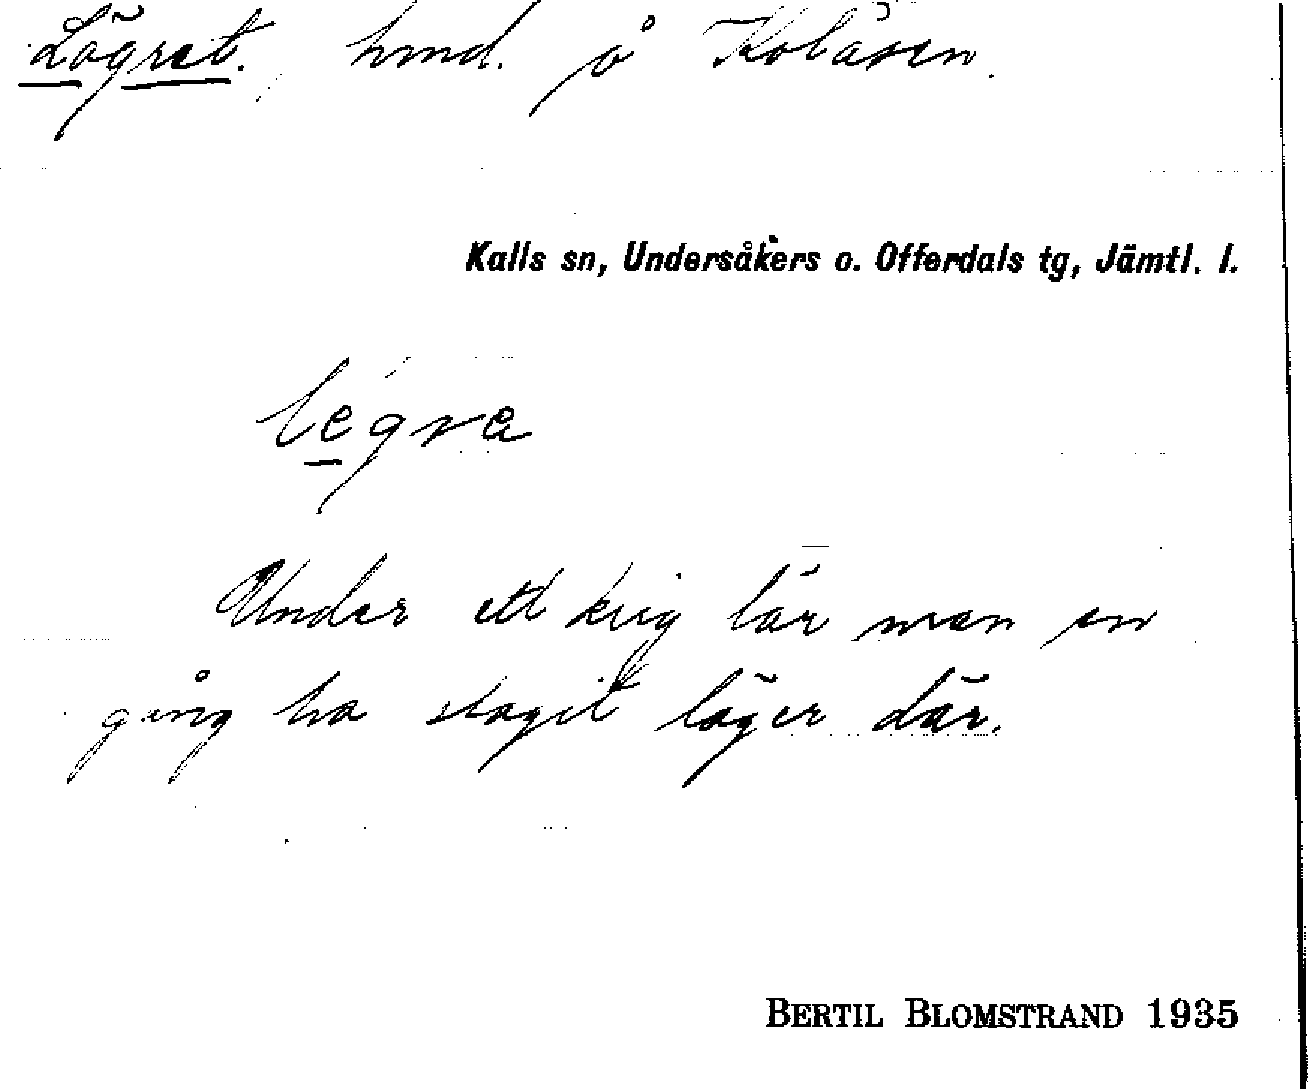 Lägret. hmd. å Kolåsen.
Kalls sn, Undersåkers o. Offerdals tg, Jämtl. l.
légra
Under ett krig lär man en
gång ha slagit läger där.
BERTIL BLOMSTRAND 1935